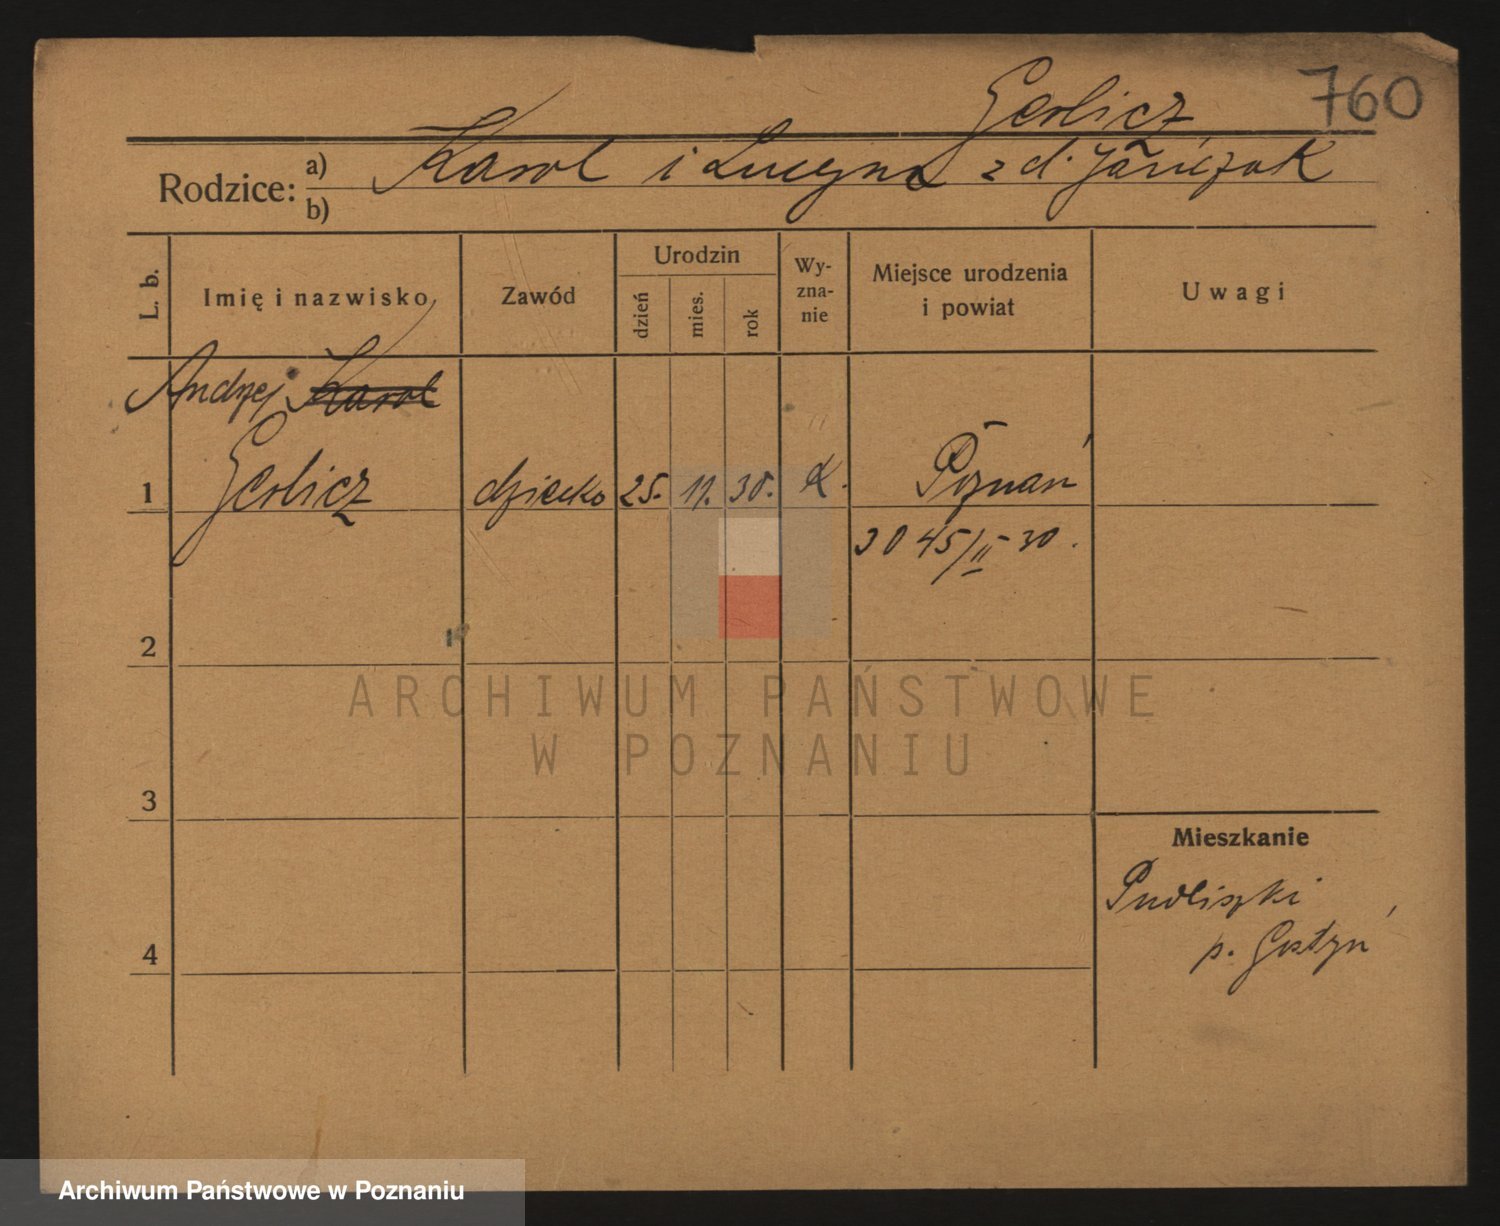 Gerlicz 760
Rodzice: a) Karol i Lucyna z d. Jańczak
b)
L. b. Imię i nazwisko Zawód Urodzin dzień mies. rok Wy-zna-nie Miejsce urodzenia i powiat Uwagi
Andrzej Karol
1 Gerlicz dziecko 25. 11. 30. K. Poznań
3045/II 30.
2
ARCHIWUM PAŃSTWOWE
W POZNANIU
3
Mieszkanie
Pudliszki
p. Gostyń
4
Archiwum Państwowe w Poznaniu